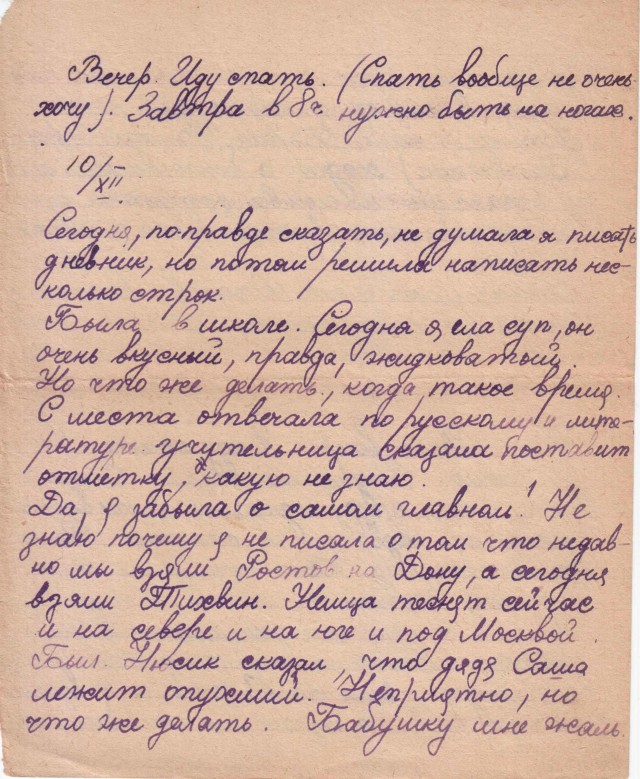 Вечер. Иду спать. (Спать вообще не очень
хочу). Завтра в 8ч нужно быть на ногах.
10/XII.
Сегодня, по-правде сказать, не думала я писать
дневник, но потом решила написать нес-
колько строк.
Была в школе. Сегодня я ела суп, он
очень вкусный, правда, жидковатый.
Но что же делать, когда такое время.
С места отвечала по русскому и лите-
ратуре. учительница сказала поставит
отметку, какую не знаю.
Да, я забыла о самом главном! Не
знаю почему я не писала о том что недав-
но мы взяли Ростов на Дону, а сегодня
взяли Тихвин. Немца теснят сейчас
и на севере и на юге и под Москвой.
Был Нюсик сказал, что дядя Саша
лежит опухший. Неприятно, но
что же делать. Бабушку мне жаль.